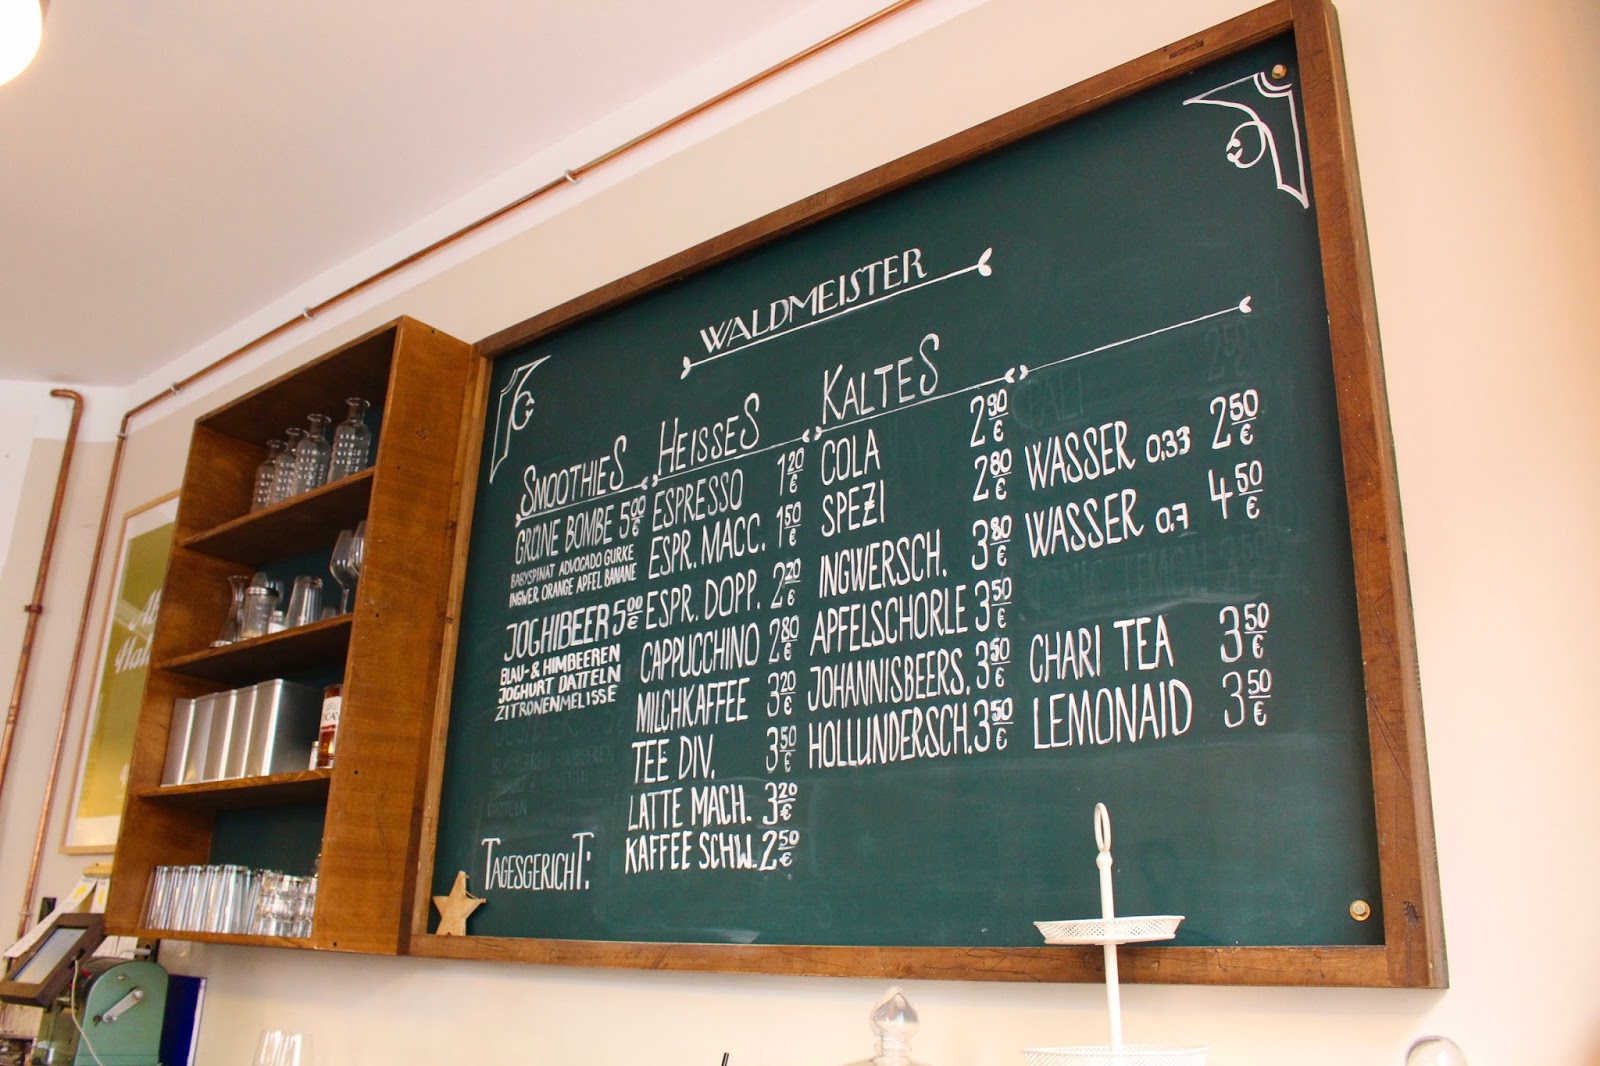 WALDMEISTER
SMOOTHIES
GRÜNE BOMBE 5 00 €
BABYSPINAT ADVOCADO GURKE
INGWER ORANGE APFEL BANANE
JOGHIBEER 5 00 €
BLAU- & HIMBEEREN
JOGHURT DATTELN
ZITRONENMELISSE
TAGESGERICHT:
HEISSES
ESPRESSO 1 20 €
ESPR. MACC. 1 50 €
ESPR. DOPP. 2 20 €
CAPPUCCHINO 2 80 €
MILCHKAFFEE 3 20 €
TEE DIV. 3 50 €
LATTE MACH. 3 20 €
KAFFEE SCHW. 2 50 €
KALTES
COLA 2 80 €
SPEZI 2 80 €
INGWERSCH. 3 80 €
APFELSCHORLE 3 50 €
JOHANNISBEERS. 3 50 €
HOLLUNDERSCH. 3 50 €
WASSER 0,33 2 50 €
WASSER 0,7 4 50 €
CHARI TEA 3 50 €
LEMONAID 3 50 €